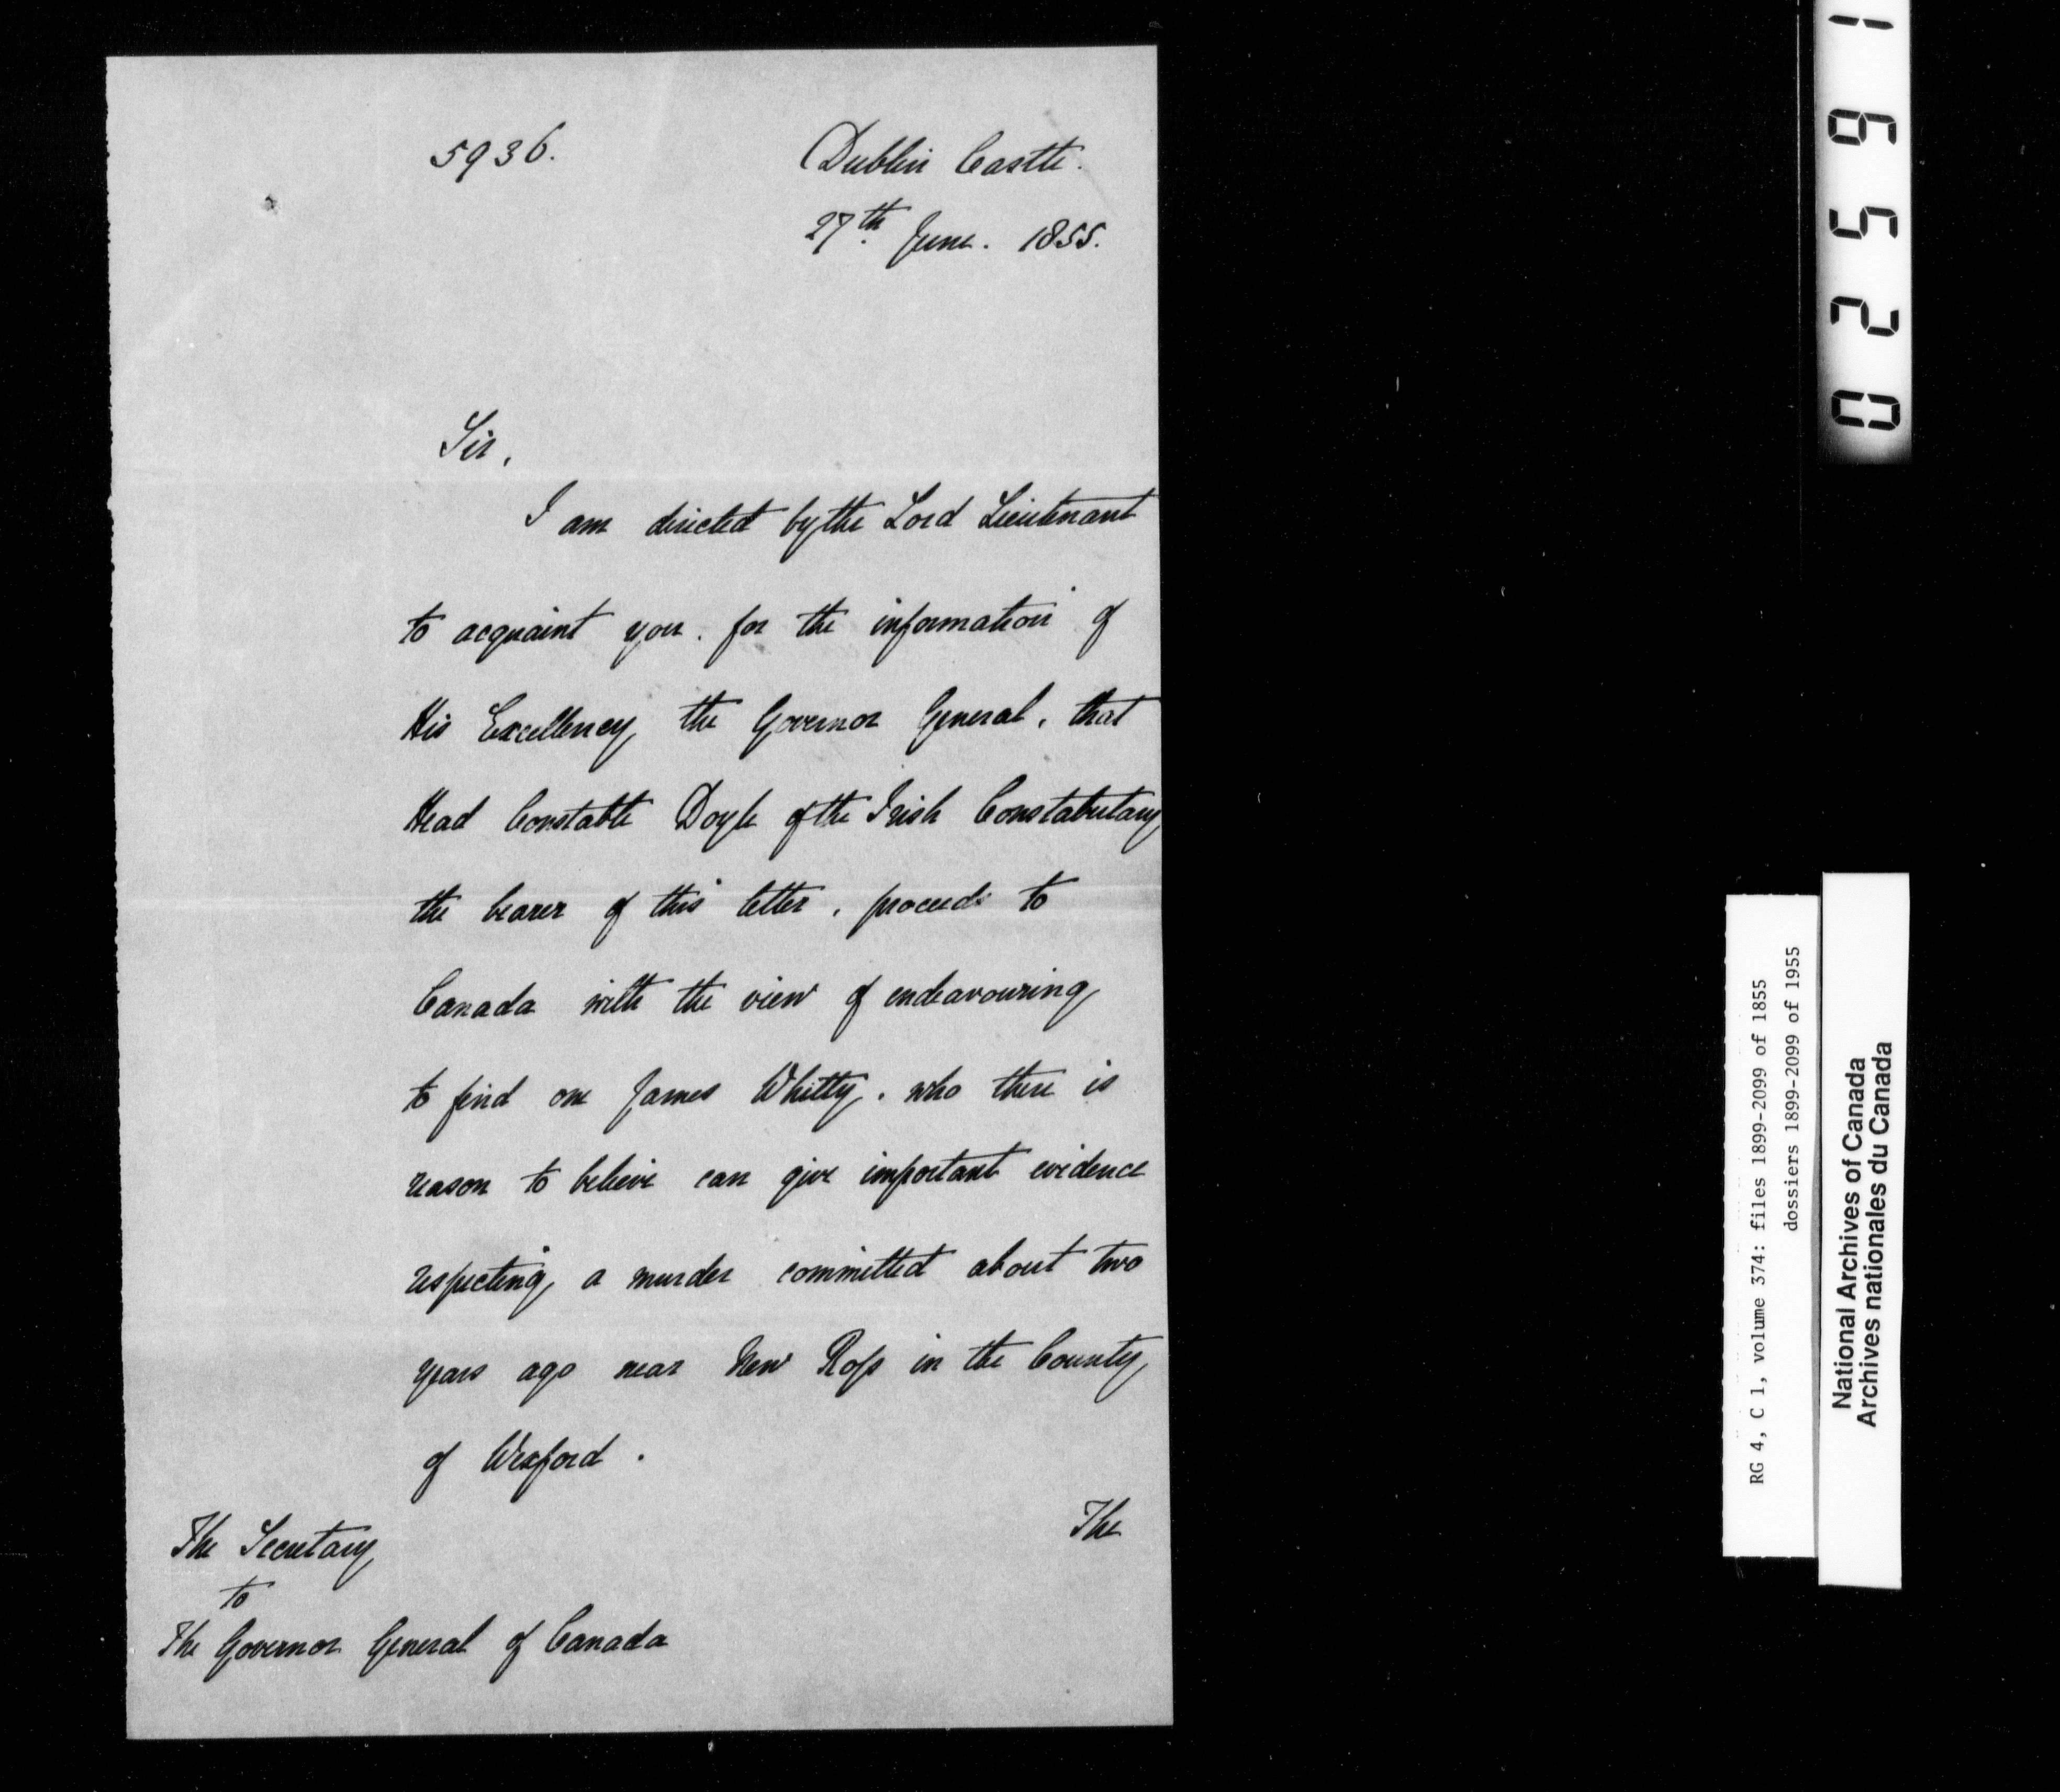 5936.
Dublin Castle.
27th June. 1855.
Sir,
I am directed by the Lord Lieutenant
to acquaint you. for the information of
His Excellency the Governor General, that
Head Constable Doyle of the Irish Constabulary
the bearer of this letter, proceeds to
Canada with the view of endeavouring
to find one James Whitty. who there is
reason to believe can give important evidence
respecting a murder committed about two
years ago near New Ross in the County
of Wexford.
The
The Secretary
to
The Governor General of Canada
02591
RG 4, C 1, volume 374: files 1899-2099 of 1855
dossiers 1899-2099 of 1955
National Archives of Canada
Archives nationales du Canada